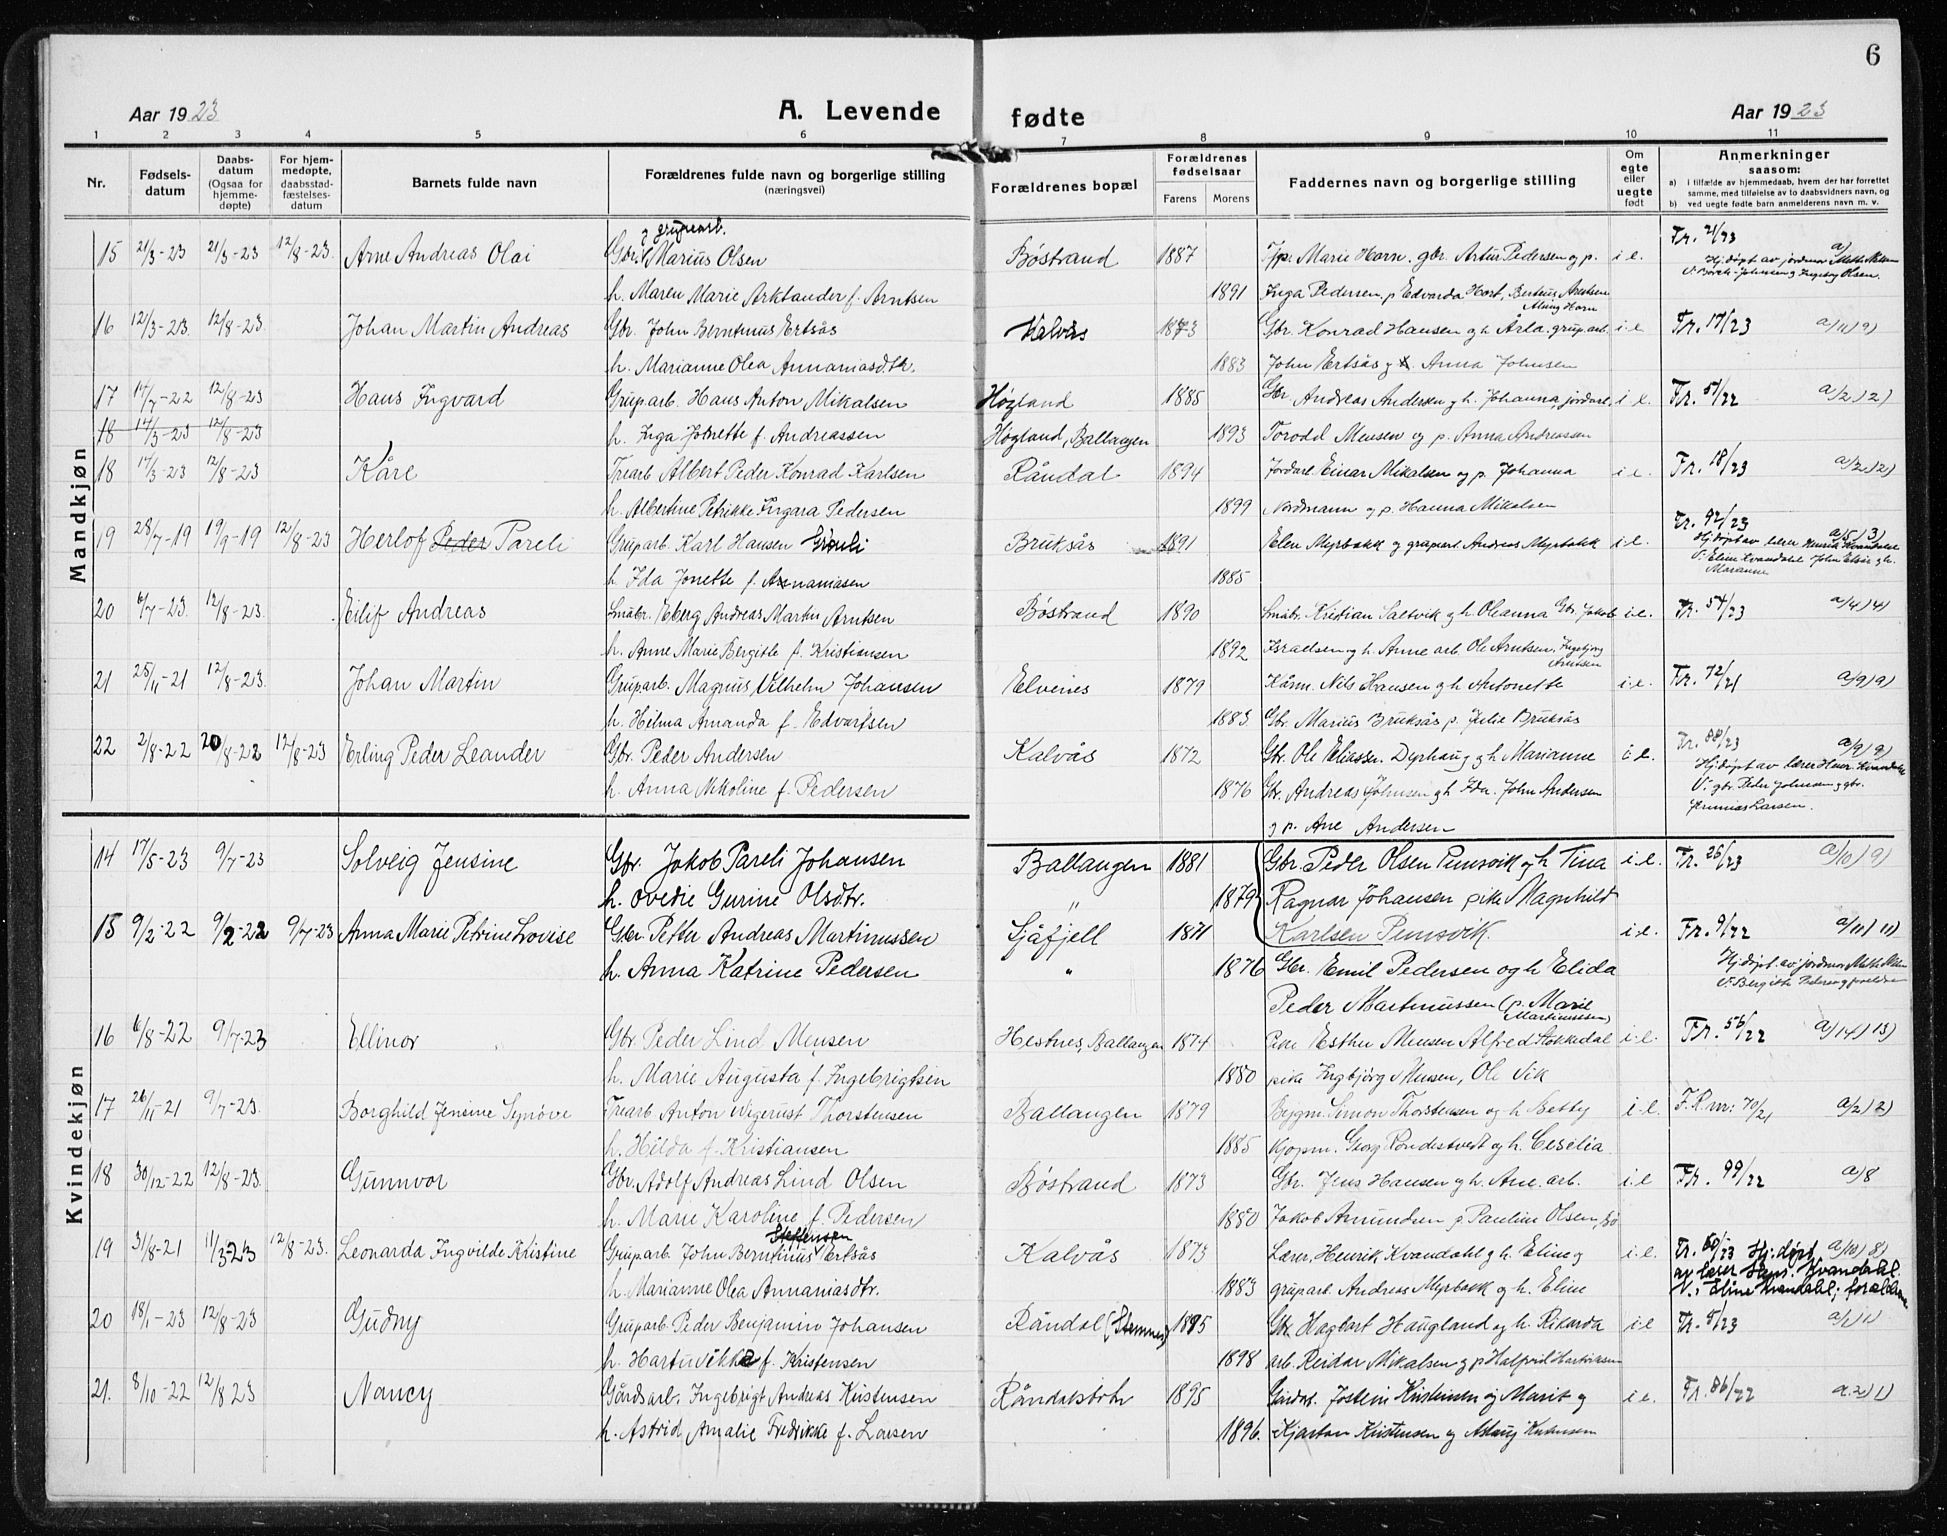 6
Aar 1923
A. Levende
fødte
Aar 1923
1 2 3 4 5 6 7 8 9 10 11
Nr.
Fødsels-datum
Daabs-datum (Ogsaa for hjemme-døpte)
For hjem-medøpte, daabsstad-fæstelses-datum
Barnets fulde navn
Forældrenes fulde navn og borgerlige stilling (næringsvei)
Forældrenes bopæl
Forældrenes fødselsaar
Farens Morens
Faddernes navn og borgerlige stilling
Om egte eller uegte født
Anmerkninger saasom:
a) i tilfælde av hjemmedaab, hvem der har forrettet samme, med tilføielse av to daabsvidners navn, og
b) ved uegte fødte barn anmelderens navn m. v.
Mandkjøn
15 21/3-23 21/3-23 12/8-23 Arne Andreas Olai Gbr. og gruparb. Marius Olsen Bøstrand 1887 Marie Horn. gbr. Artur Pedersen og p. i.e. Fr. 21/23
h. Maren Marie Arktander f. Arntsen 1891 Inga Pedersen, p Edvarda Horn, Berteus Arntsen
16 12/3-23 12/8-23 Johan Martin Andreas Gbr. John Berntinus Ertsås Kalvås 1873 Gbr. Konrad Hansen og h. Årla. gruparb. i.e. Fr. 17/23 a/11) 9)
h. Marianne Olea Annaniasdtr. 1883 John Ertsås og Anna Johnsen
17 17/7-22 12/8-23 Hans Ingvard Gruparb. Hans Anton Mikalsen Høgland 1885 Gbr. Andreas Andersen og h. Johanna, jordarb. i.e. Fr. 51/22 a/2) 2)
18 17/3-23 12/8-23 h. Inga Jonette f. Andreassen Høgland, Ballangen 1893 Torodd Mensen og p. Anna Andreassen
18 17/3-23 12/8-23 Kåre Trearb. Albert Peder Konrad Karlsen Råndal 1894 Jordarb. Einar Mikalsen og p. Johanna i.e. Fr. 18/23 a/2) 2)
h. Albertine Petrikke Ingara Pedersen 1899 Nordmann og p. Hanna Mikalsen
19 28/7-19 19/9-19 12/8-23 Herlof Peder Pareli Gruparb. Karl Hansen Bruksås 1891 Elen Myrbakk og gruparb. Andreas Myrbakk i.e. Fr. 92/23 a/5) 3)
h. Ida Jonette f. Annaniasen 1885
20 6/7-23 12/8-23 Eilif Andreas Småbr. Eberg Andreas Martin Arntsen Bøstrand 1890 Småbr. Kristian Saltvik og h. Oleanna Gbr. Jakob i.e. Fr. 54/23 a/4) 4)
h. Anne Marie Bergitte f. Kristiansen 1892 Israelsen og h. Anne arb. Ole Arntsen, Ingebjørg Arntsen
21 25/11-21 12/8-23 Johan Martin Gruparb. Magnus Vilhelm Johansen Elvenes 1879 Kårm. Nils Hansen og h. Antonette i.e. Fr. 72/21 a/9) 9)
h. Hilma Amanda f. Edvartsen 1883 Gbr. Marius Bruksås p. Julie Bruksås
22 2/8-22 20/8-22 12/8-23 Erling Peder Leander Gbr. Peder Andersen Kalvås 1872 Gbr. Ole Eliassen Dyphaug og h Marianne i.e. Fr. 88/23 a/9) 9)
Hj.døpt av lærer Henr. Kvandahl
h. Anna Nikoline f. Pedersen 1876 Gbr. Andreas Johnsen og h Ida. John Andersen V. gbr. Peder Johnsen og gbr.
og p. Ane Andersen Larsen.
Kvindekjøn
14 17/5-23 9/7-23 Solveig Jensine Gbr. Jakob Pareli Johansen Ballangen 1881 Gbr. Peder Olsen Pumsvik og h Tina i.e. Fr. 26/23 a/10) 9)
h. Ovedie Gurine Olsdtr. " 1879 Ragnar Johansen pike Magnhild
15 9/2-22 9/2-22 9/7-23 Anna Marie Petrine Lovise Gbr. Petter Andreas Martinussen Sjåfjell 1871 Karlsen Pumsvik. i.e. Fr. 9/22 a/11) 11)
h. Anna Katrine Pedersen " 1876 Gbr. Emil Pedersen og h Elida Hj.døpt av jordmor
Peder Martinussen (p. Marie Martinussen)
16 6/8-22 9/7-23 Ellinor Gbr. Peder Lind Mensen Hestnes, Ballangen 1874 Pike Esther Mensen Alfred Hokkedal i.e. Fr. 56/22 a/14) 13)
h. Marie Augusta f. Ingebrigtsen 1880 pike Ingbjørg Mensen, Ole Vik
17 26/11-21 9/7-23 Borghild Jensine Synøve Trearb. Anton Wegerust Thorstensen Ballangen 1879 Bygm. Simon Thorstensen og h Betty i.e. F.R nr: 70/21 a/2) 2)
h. Hilda f. Kristiansen 1885 Kjøpm. Georg Rondestvedt og h. Ceselia
18 30/12-22 12/8-23 Gunnvor Gbr. Adolf Andreas Lind Olsen Bøstrand 1873 Gbr. Jens Hansen og h. Ane. arb. i.e Fr. 99/22 a/8
h. Marie Karoline f. Pedersen 1880 Jakob Amundsen p. Pauline Olsen, Bø
19 31/8-21 11/3-23 12/8-23. Leonarda Ingvilde Kristine Gruparb. John Berntinus Steffensen Ertsås Kalvås 1873 Lærer, Henrik Kvandahl og h. Eline og i.e. Fr. 60/23 Hj.døpt a/10) 8)
av lærer Hens. Kvandahl.
h. Marianne Olea Annaniasdtr. 1883 gruparb. Andreas Myrbakk og h. Eline V.: Eline Kvandahl; forældrene
20 18/1-23 12/8-23 Gudny Gruparb. Peder Benjamin Johansen Råndal (Stemnes) 1895 Gbr. Hagbart Haugland og h. Rikarda i.e Fr. 5/23 a/1) 1)
h. Hartuvikke f. Kristensen 1898 arb. Reidar Mikalsen og p Halfrid Hartviksen
21. 8/10-22 12/8 23 Nancy Gårdsarb. Ingebrigt Andreas Kristensen Råndalsbotn 1895 Gårdsb. Jostein Kristensen og Marit og i.e. Fr. 86/22 a.2) 1)
h. Astrid Amalie Fredrikke f. Larsen 1896. Kjartan Kristensen og Aslaug Kristensen